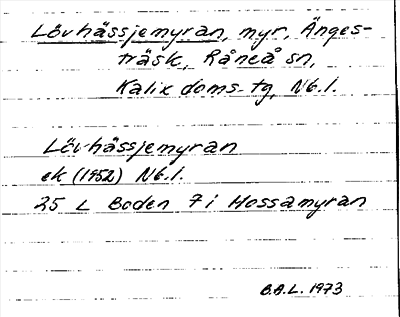 Lövhässjemyran, myr, Änges-
träsk, Råneå sn,
Kalix doms. tg, Nb.l.
Lövhässjemyran
ek (1952) Nb.l.
25 L Boden 7i Mossamyran
B.A.L. 1973